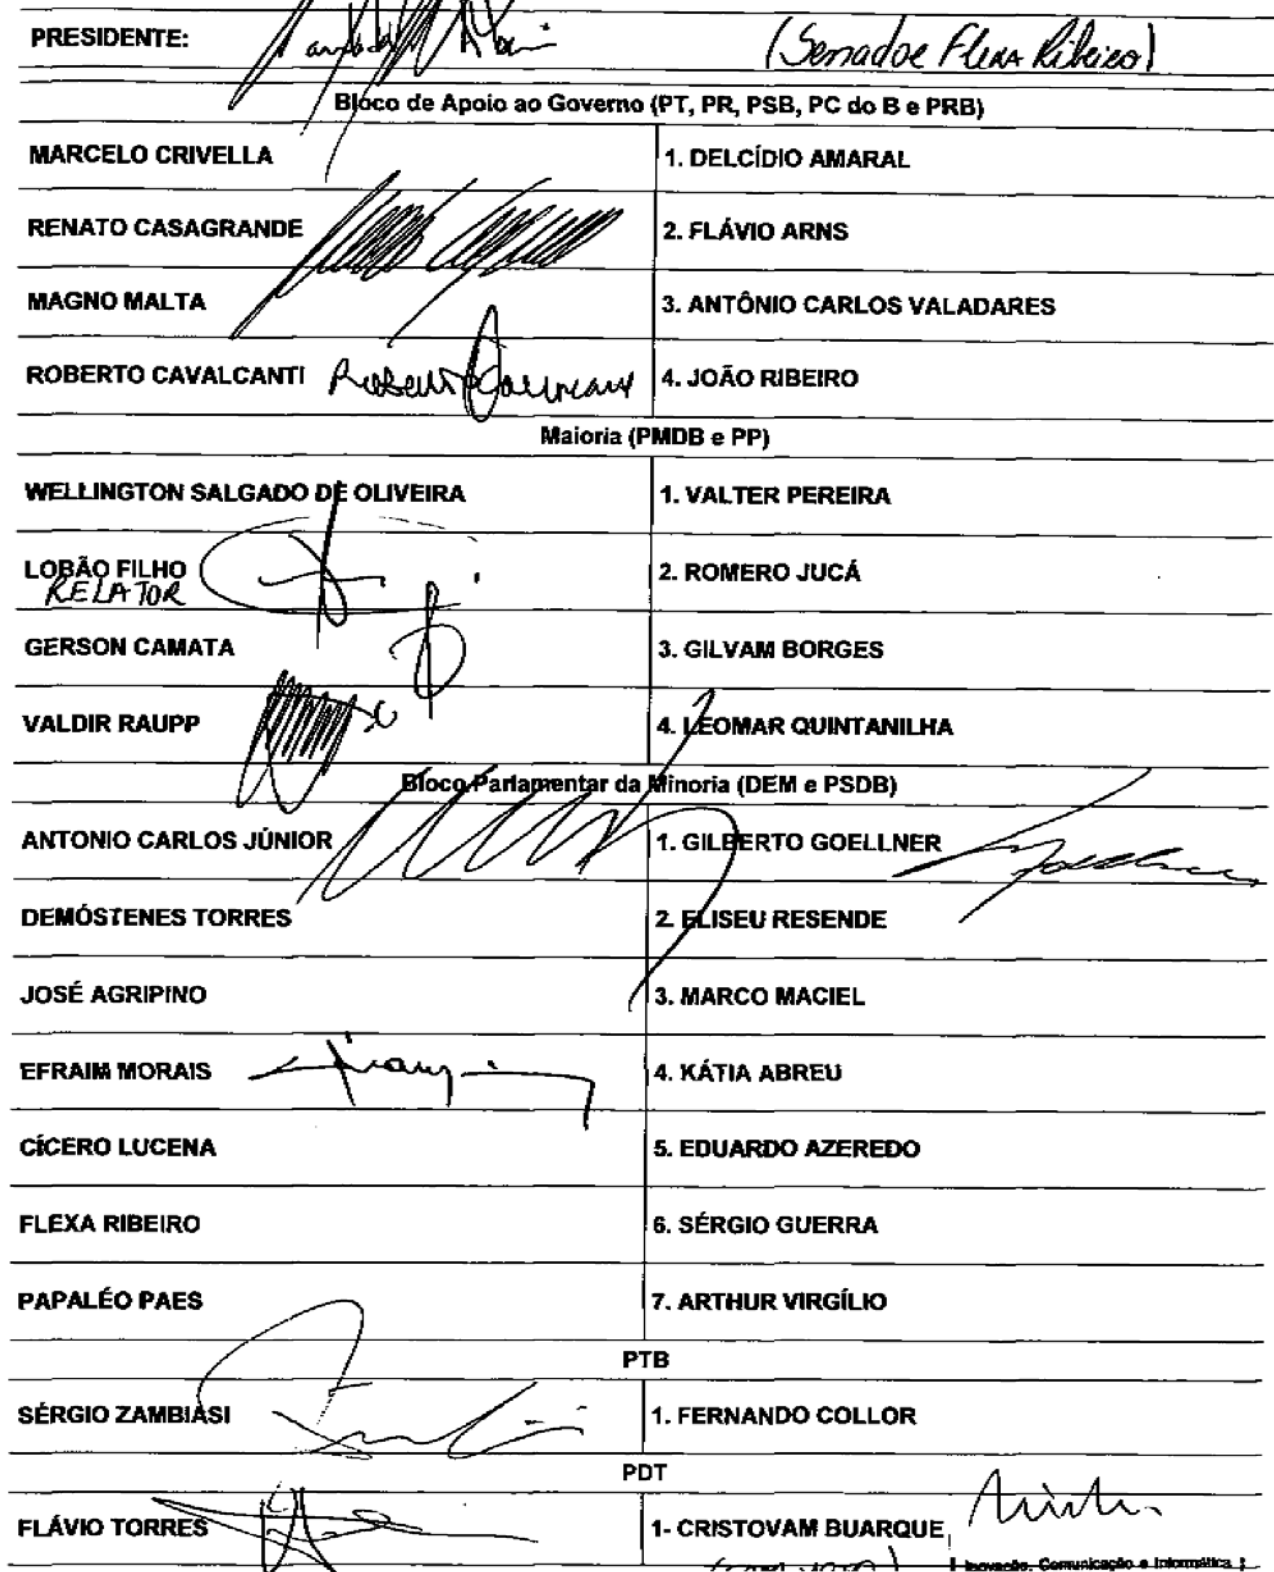 PRESIDENTE: (Senador Flexa Ribeiro)
Bloco de Apoio ao Governo (PT, PR, PSB, PC do B e PRB)
MARCELO CRIVELLA 1. DELCÍDIO AMARAL
RENATO CASAGRANDE 2. FLÁVIO ARNS
MAGNO MALTA 3. ANTÔNIO CARLOS VALADARES
ROBERTO CAVALCANTI 4. JOÃO RIBEIRO
Maioria (PMDB e PP)
WELLINGTON SALGADO DE OLIVEIRA 1. VALTER PEREIRA
LOBÃO FILHO 2. ROMERO JUCÁ
RELATOR
GERSON CAMATA 3. GILVAM BORGES
VALDIR RAUPP 4. LEOMAR QUINTANILHA
Bloco Parlamentar da Minoria (DEM e PSDB)
ANTONIO CARLOS JÚNIOR 1. GILBERTO GOELLNER
DEMÓSTENES TORRES 2. ELISEU RESENDE
JOSÉ AGRIPINO 3. MARCO MACIEL
EFRAIM MORAIS 4. KÁTIA ABREU
CÍCERO LUCENA 5. EDUARDO AZEREDO
FLEXA RIBEIRO 6. SÉRGIO GUERRA
PAPALÉO PAES 7. ARTHUR VIRGÍLIO
PTB
SÉRGIO ZAMBIASI 1. FERNANDO COLLOR
PDT
FLÁVIO TORRES 1- CRISTOVAM BUARQUE
Inovação, Comunicação e Informática